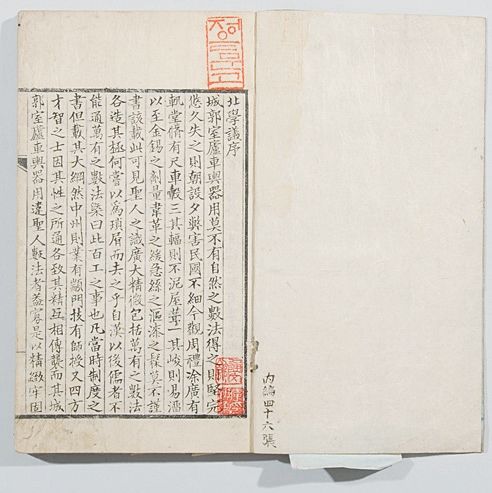 北學議序
城郭室廬車輿器用莫不有自然之數法得之則堅完
悠久失之則朝設夕弊害民國不細今觀周禮涂廣有
軌堂脩有尺車轂三其輻則不泥屋葺一其峻則易溜
以至金錫之劑量韋革之緩急絲之漚漆之髹莫不謹
書該載此可見聖人之識廣大精微包括萬有之數法
各造其極何嘗以爲瑣屑而去之乎自漢以後儒者不
能通萬有之數法槩曰此百工之事也凡當時制度之
書但載其大綱然中州則業有顓門技有師授又四方
才智之士因其性之所通各致其精互相傳襲而其城
郭室廬車輿器用違聖人數法者益寡是以精緻牢固
內編四十六張